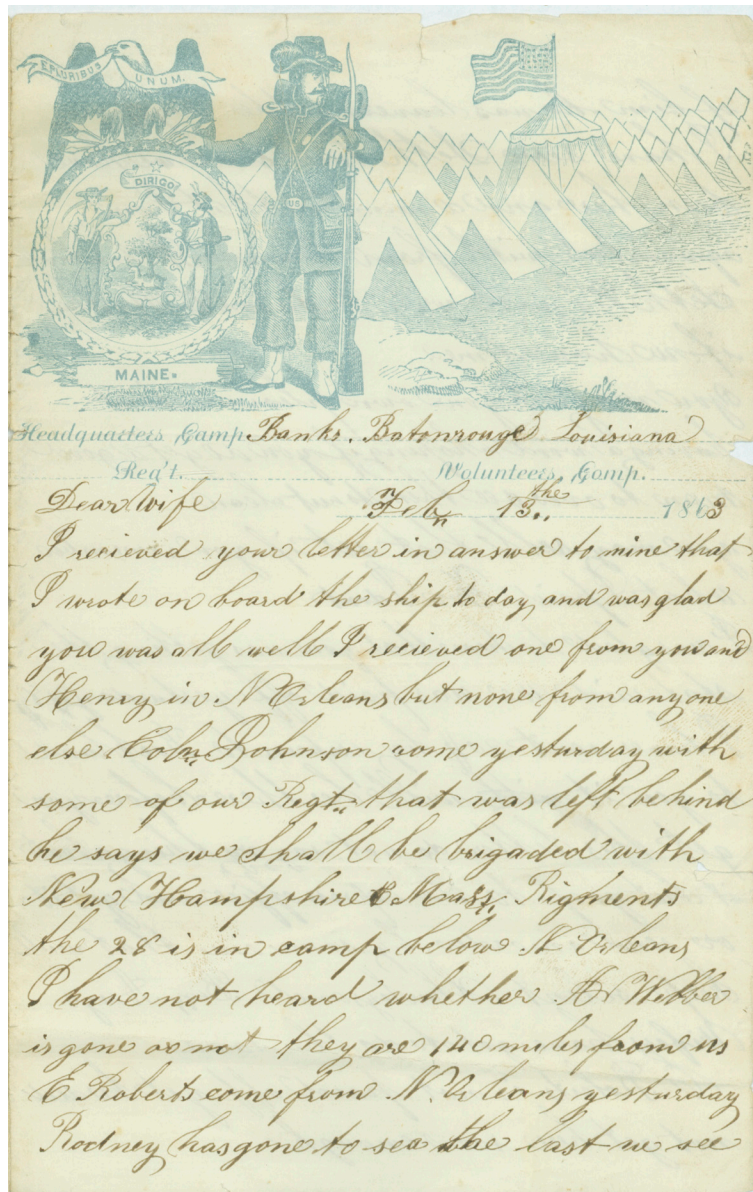 E PLURIBUS UNUM.
DIRIGO
US
MAINE.
Headquarters, Camp Banks. Batonrouge Louisiana
Reg't. Volunteers, Comp.
Dear Wife Feb 13th 1863
I recieved your letter in answer to mine that
I wrote on board the ship to day, and was glad
you was all well I recieved one from you and
Henry in N Orleans but none from any one
else Coln Johnson come yesturday with
some of our Regt. that was left behind
he says we shall be brigaded with
New Hampshire & Mass. Rigments
the 28 is in camp below N Orleans
I have not heard whether A Webber
is gone or not they are 140 miles from us
E Roberts come from N. Orleans yesturday
Rodney has gone to sea the last we see